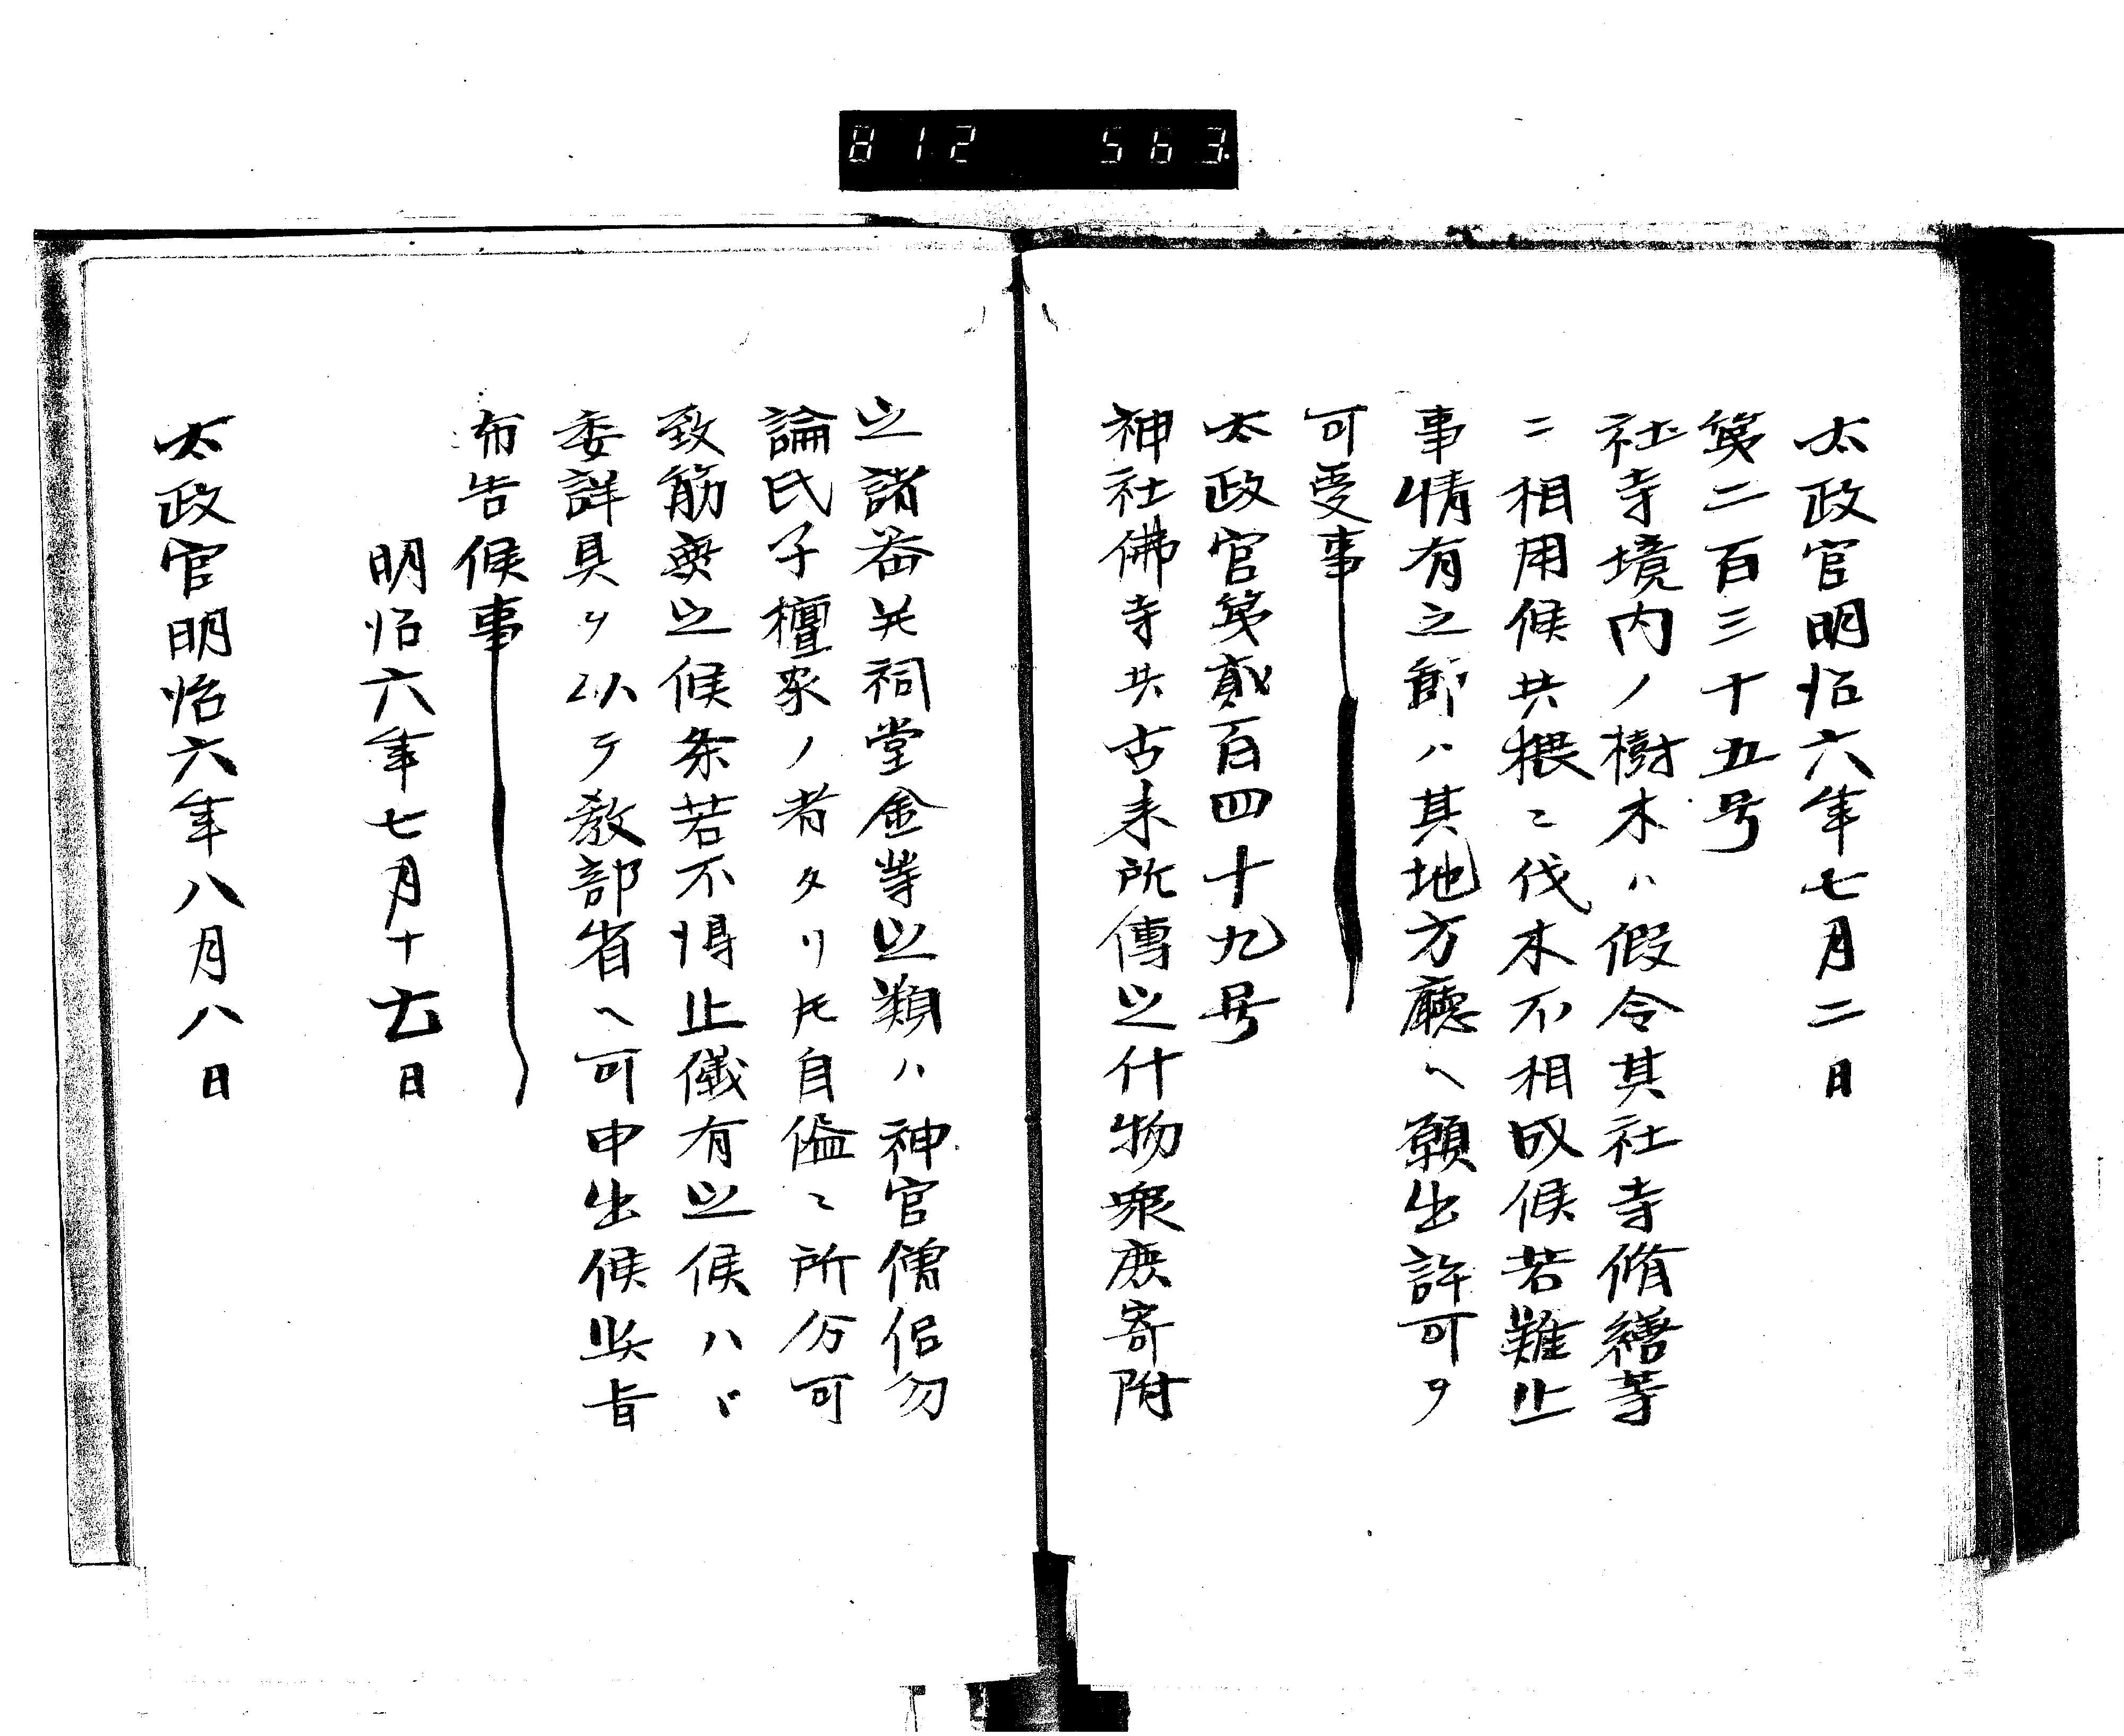 812 563
太政官明治六年七月二日
第二百三十五号
社寺境内ノ樹木ハ假令其社寺脩繕等
ニ相用候共猥ニ伐木不相成候若難止
事情有之節ハ其地方廳ヘ願出許可ヲ
可受事
太政官第貳百四十九号
神社佛寺共古来所傳之什物衆庶寄附
之諸器并祠堂金等之類ハ神官僧侶勿
論氏子檀家ノ者タリ𪜈自儘ニ所分可
致筋無之候条若不得止儀有之候ハヾ
委詳具ヲ以テ教部省ヘ可申出候此旨
布告候事
明治六年七月十七日
太政官明治六年八月八日